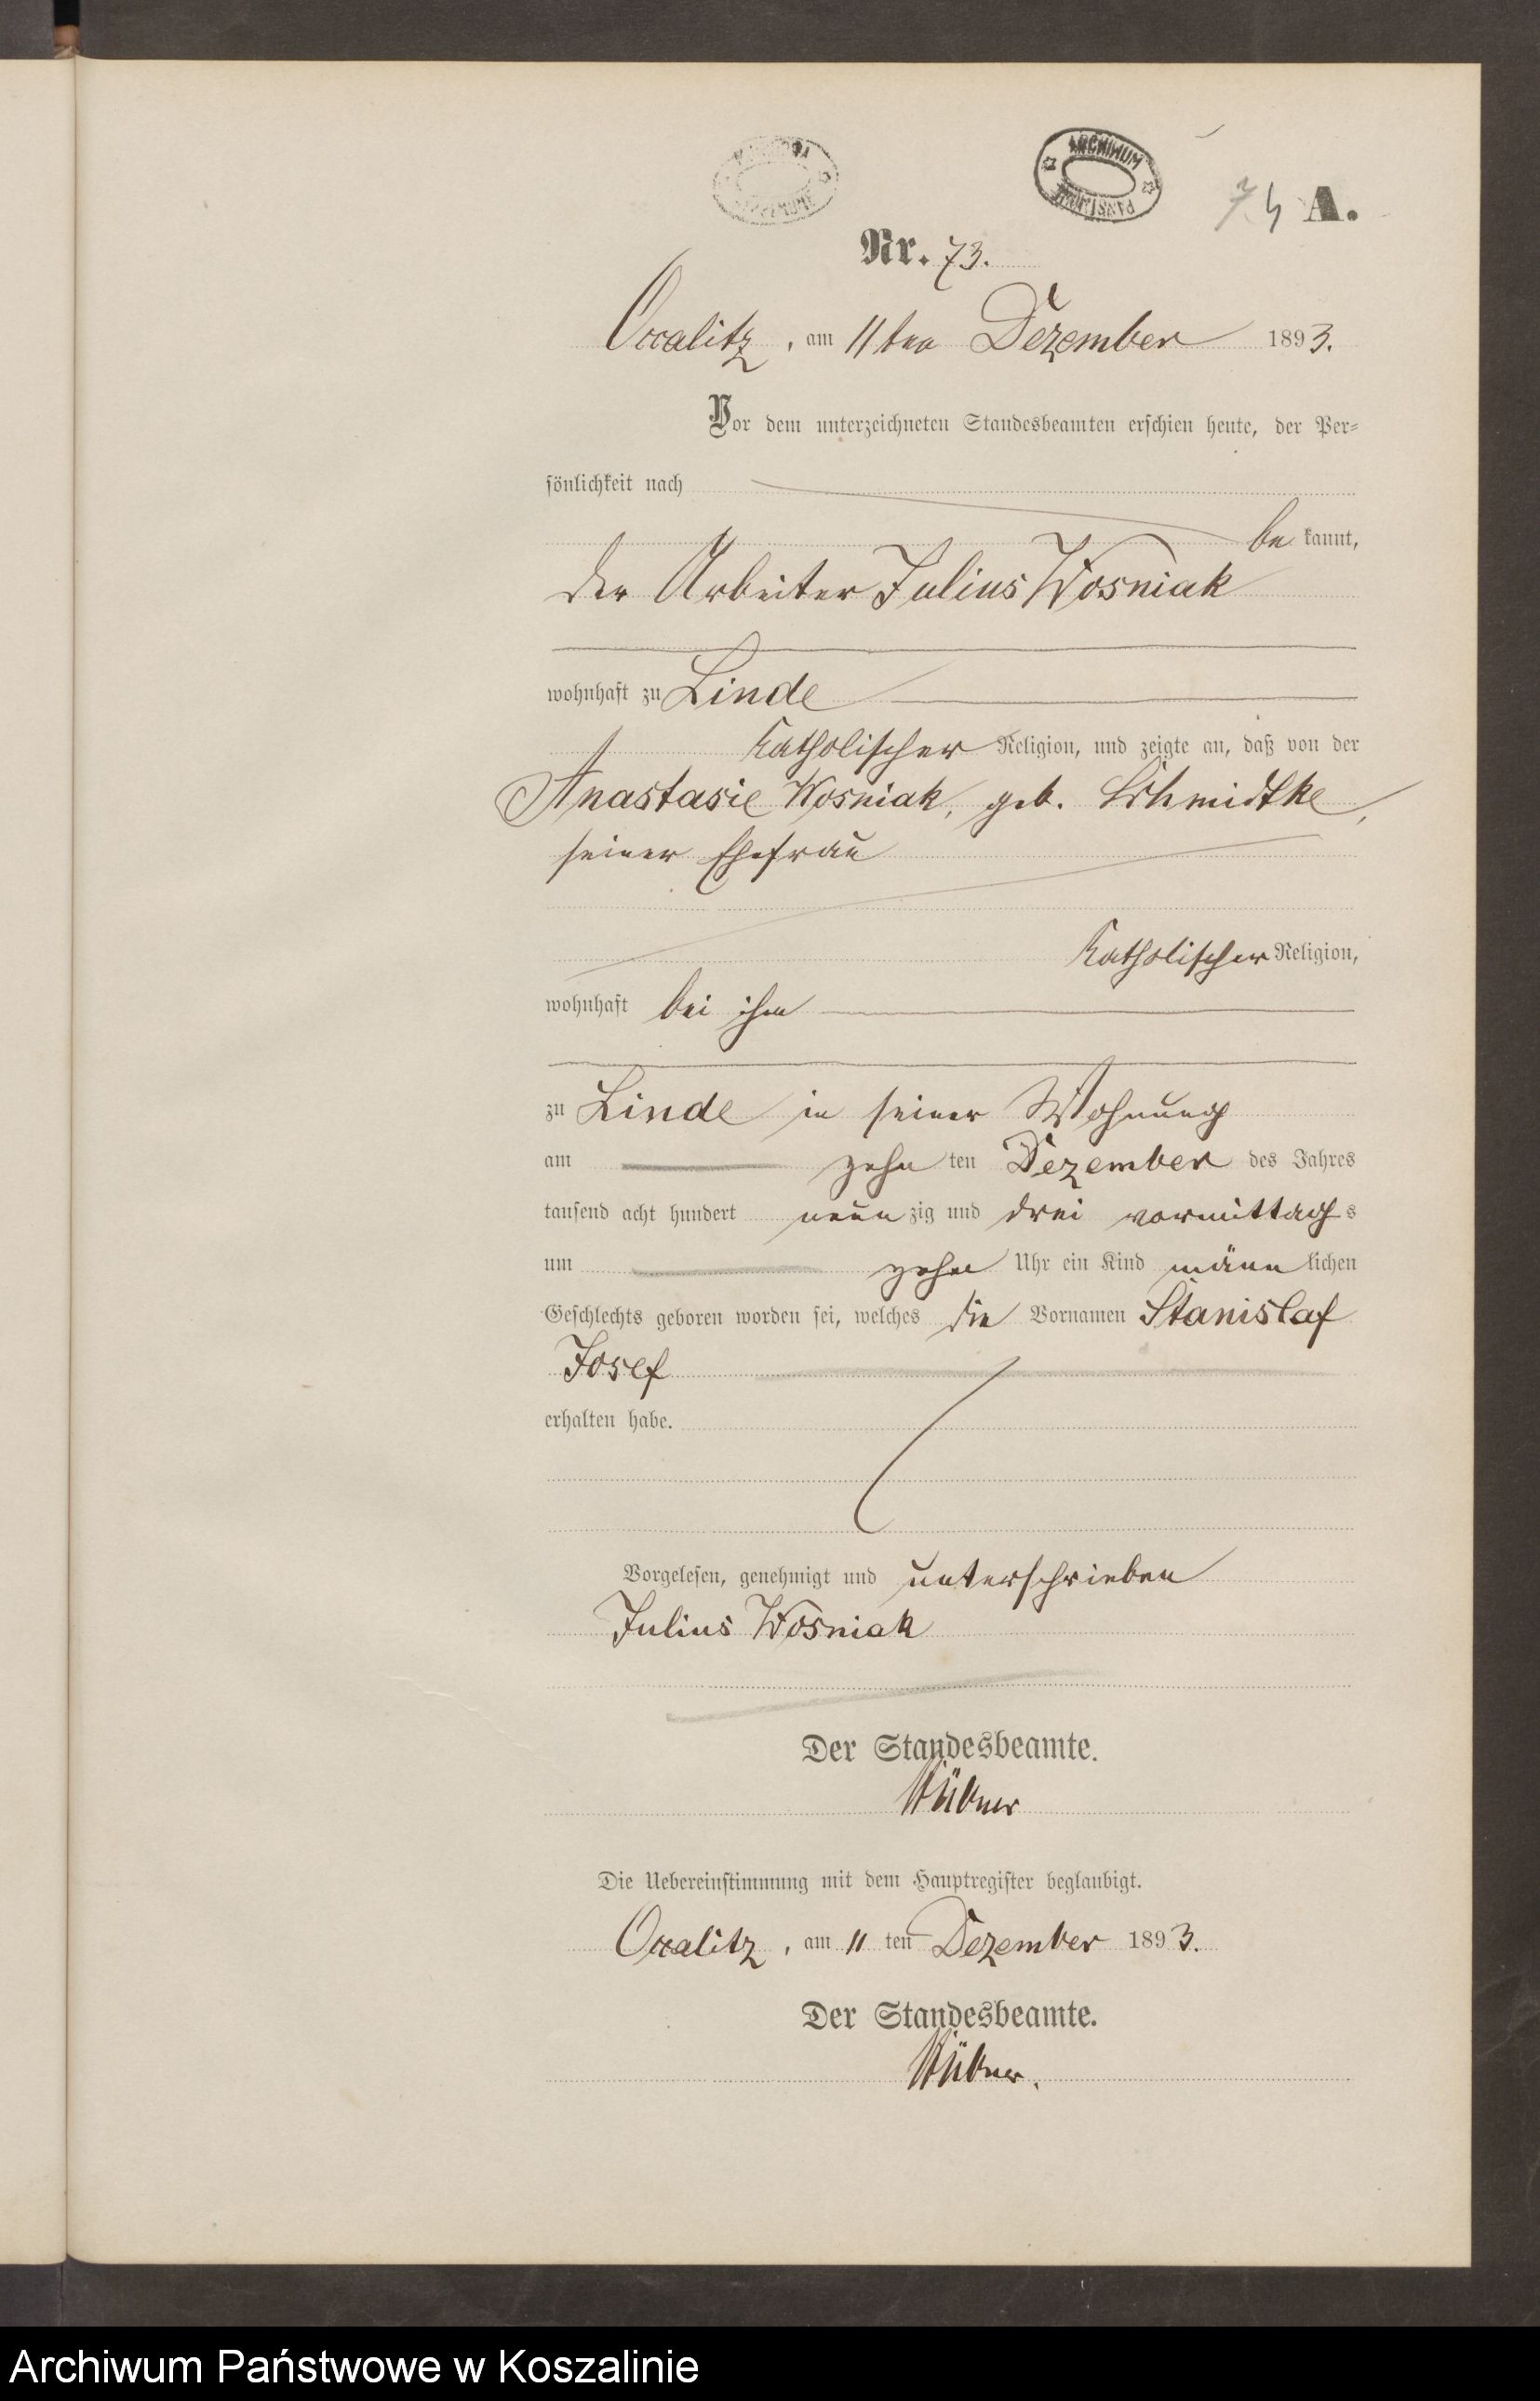 ARCHIWUM
PAŃSTWOWE
74 A.
Nr. 73.
Occalitz, am 11ten Dezember 1893.
Vor dem unterzeichneten Standesbeamten erschien heute, der Per-
sönlichkeit nach
be kannt,
der Arbeiter Julius Wosniak
wohnhaft zu Linde
katholischer Religion, und zeigte an, daß von der
Anastasie Wosniak, geb. Schmidtke,
seiner Ehefrau
katholischer Religion,
wohnhaft bei ihm
zu Linde in seiner Wohnung
am zehn ten Dezember des Jahres
tausend acht hundert neun zig und drei vormittags
um zehn Uhr ein Kind männ lichen
Geschlechts geboren worden sei, welches die Vornamen Stanislaf
Josef
erhalten habe.
Vorgelesen, genehmigt und unterschrieben
Julius Wosniak
Der Standesbeamte.
Die Uebereinstimmung mit dem Hauptregister beglaubigt.
Occalitz, am 11 ten Dezember 1893.
Der Standesbeamte.
Archiwum Państwowe w Koszalinie